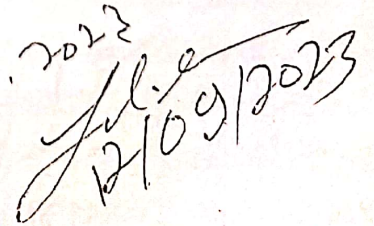 .2023
12/09/2023